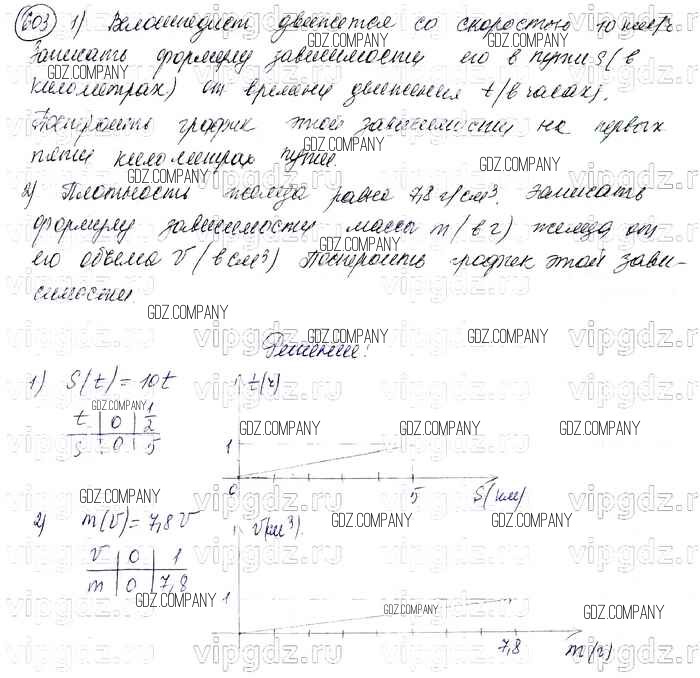 603 1) Велосипедист движется со скоростью 10 км/ч.
Записать формулу зависимости его пути S (в
километрах) от времени движения t (в часах).
Построить график этой зависимости на первых
пяти километрах пути.
2) Плотность железа равна 7,8 г/см³. Записать
формулу зависимости массы m (в г) железа от
его объема V (в см³). Построить график этой зави-
симости.
Решение:
1) S(t)=10t
t(ч)
t 0 1/2
S 0 5
1
0 5 S(км)
2) m(V)=7,8V
V(см³)
V 0 1
m 0 7,8
1
7,8 m(г)
GDZ.COMPANY
vipgdz.ru